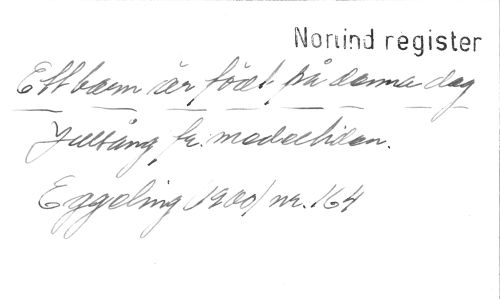 Norlind register
Ett barn är födt på denna dag
Julsång fr. medeltiden.
Eggeling 1900/ nr. 164